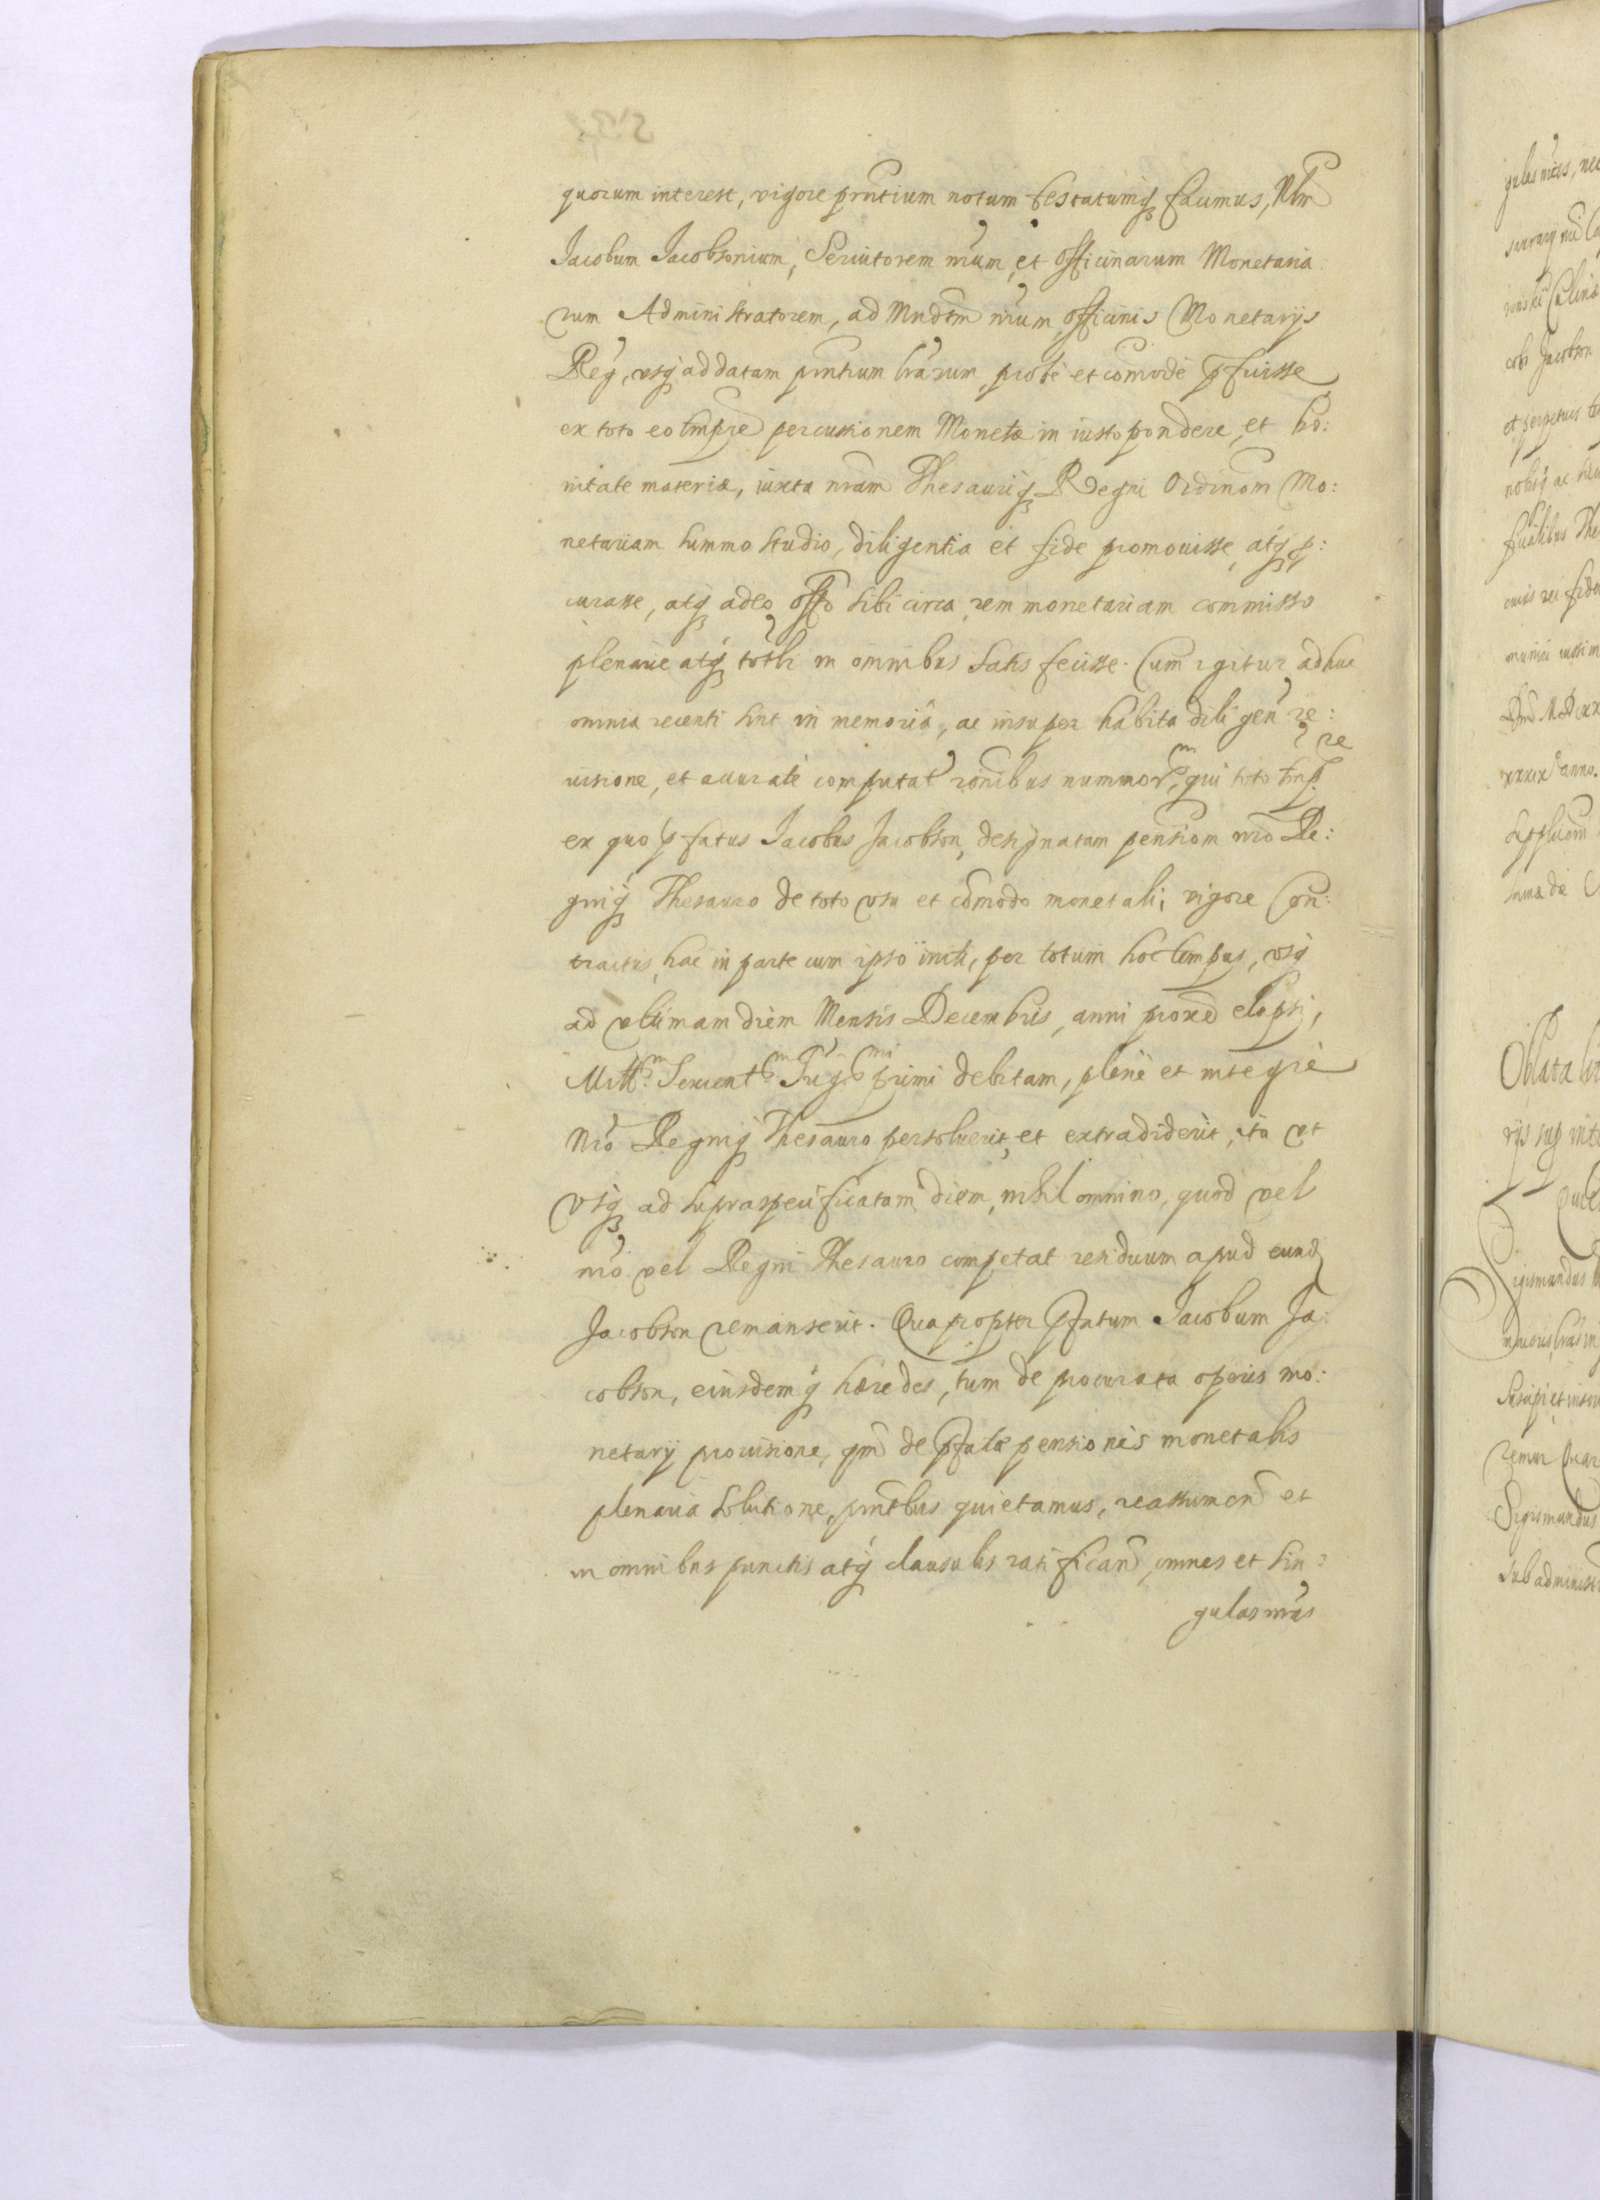 quorum interest, vigore pñtium notum testatumq3 facimus, Nblm
Jacobum Jacobsonium, Seruitorem nrum, et Officinarum Monetaria
rum Administratorem, ad Mndtm nrum, officinis Monetarijs
Reg, vsq ad datam pñtium lrarum, probè et comodè pfuisse
ex toto eo tmpre percussionem Monetæ in iusto pondere, et bo:
nitate materiæ, iuxta nram Thesauriq3 Regni Ordinom Mo:
netariam summo studio, diligentia et fide promouisse, atq3 p:
curasse, atq3 adeo offo sibi circa rem monetariam commisso
plenarie atq3 totlr in omnibus satis fecisse. Cum igitur adhuc
omnia recenti sint in memoriâ, ac insuper habita diligen re:
uisione, et accuratè computat ronibus nummor, qui toto tmpre
ex quo pfatus Jacobus Jacobson, designatam pensiom nro Re:
gniq3 Thesauro de toto vsu et comodo monetali, vigore Con:
tractus, hac in parte cum ipso initi, per totum hoc tempus, vsq
ad vltimam diem Mensis Decembris, anni proxe elapsi,
Mill Sexcent Trig primi debitam, plenè et integrè
Nro Regniq3 Thesauro persoluerit, et extradiderit, ita vt
vsq3 ad supraspecificatam diem, nihil omnino, quod vel
nro vel Regni Thesauro competat residuum apud eund
Jacobson remanserit. Quapropter pfatum Jacobum Ja:
cobson, eiusdemq3 hæredes, tum de procurata operis mo:
netarij prouisione, qm de pfatæ pensionis monetalis
plenaria solutione, pntbus quietamus, reassumen et
in omnibus punctis atq3 clausulis ratifican, omnes et sin:
gulas nras
Oblata
Sigismundus
Sigismundus